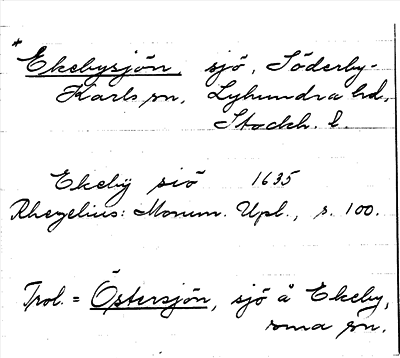 * Ekebysjön, sjö, Söderby-
Karls sn, Lyhundra hd,
Stockh. l.
Ekebÿ siö 1635
Rhezelius: Monum. Upl., s. 100.
Trol. = Östersjön, sjö å Ekeby,
sma sn.